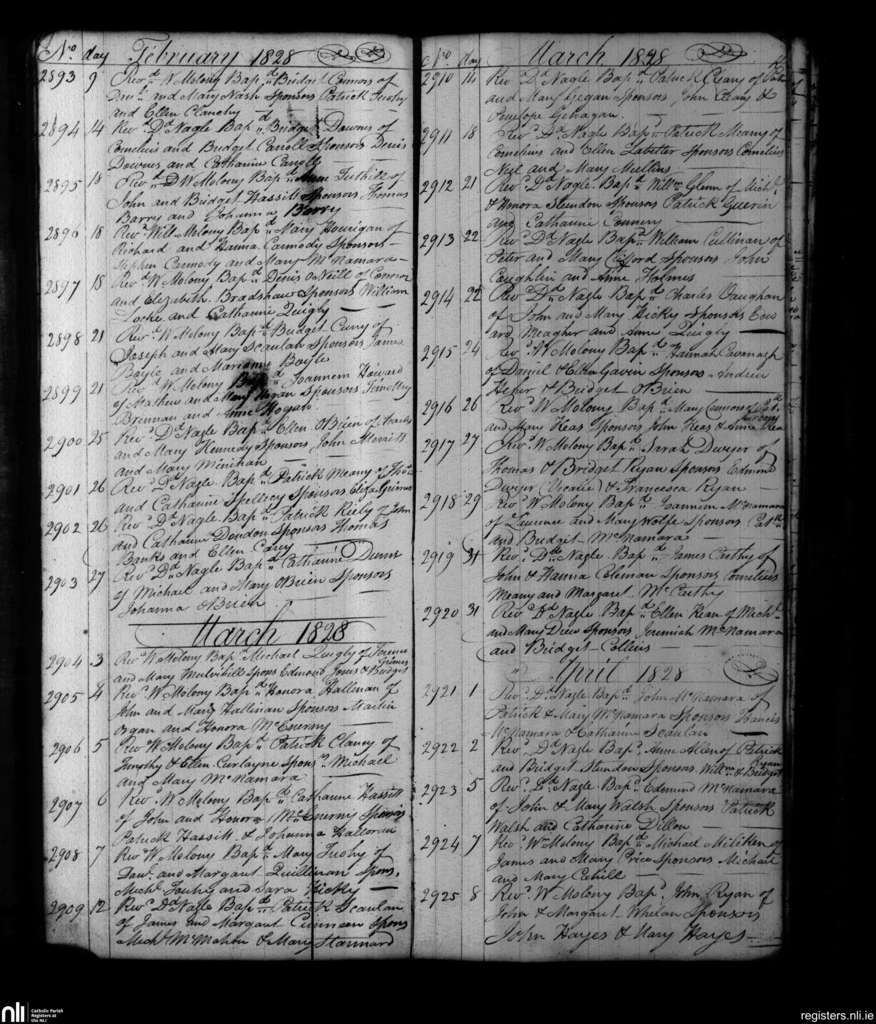 No day February 1828
2893 9 Revd W Molony Bapd Bridget Connors of
and Mary Nash Sponsors Patrick
and Ellen Clanchy
2894 14 Revd Dd Nagle Bapd Bridget Downes of
Cornelius and Bridget Carroll Sponsors Denis
Downes and Catharine
2895 18 Revd W Molony Bapd Anne Tuthill of
John and Bridget Hassitt Sponsors Thomas
Barry and Johanna Barry
2896 18 Revd Willm Molony Bapd Mary Hourigan of
Richard and Hanna Carmody Sponsors
Stephen Carmody and Mary McNamara
2897 18 Revd W Molony Bapd Denis ONeill of Connor
and Elizabeth Bradshaw Sponsors William
Locke and Catharine Quigly
2898 21 Revd W Molony Bapd Bridget Curry of
Joseph and Mary Scanlan Sponsors James
Boyle and Marianne Boyle
2899 21 Revd W Molony Bapd Joannem Howard
of Mathew and Mary Horan Sponsors Timothy
Brennan and Anne Hogan
2900 25 Revd Dd Nagle Bapd Ellen OBrien of Charles
and Mary Kennedy Sponsors John
and Mary Minihan
2901 26 Revd Dd Nagle Bapd Patrick Meany of Thos
and Catharine Spellacy Sponsors Eliza Grimes
2902 26 Revd Dd Nagle Bapd Patrick Kiely of John
and Catharine Dondon Sponsors Thomas
Banks and Ellen Carey
2903 27 Revd Dd Nagle Bapd Catharine Dunn
of Michael and Mary OBrien Sponsors
Johanna OBrien
March 1828
2904 3 Revd W Molony Bapd Michael Quigly of Terence
and Mary Mulvihill Spons Edmond Jones & Bridget Grimes
2905 4 Revd W Molony Bapd Honora Hallinan of
John and Mary Hallinan Sponsors Martin
Organ and Honora McEnerny
2906 5 Revd W Molony Bapd Patrick Clancy of
Timothy & Ellen Spons Michael
and Mary McNamara
2907 6 Revd W Molony Bapd Catharine Hassitt
of John and Honora McEnerny Sponsors
Patrick Hassitt & Johanna Halloran
2908 7 Revd W Molony Bapd Mary
of Davd and Margaret Quillinan Spons
Michl and Sara Hickey
2909 12 Revd Dd Nagle Bapd Patrick Scanlan
of James and Margaret Spons
Michl McMahon & Mary Stannard
No day March 1828
2910 14 Revd Dd Nagle Bapd Patrick Geary of
and Mary Gegan Sponsors John Geary &
Penelope Gehagan
2911 18 Revd D Nagle Bapd Patrick Meany of
Cornelius and Ellen Sponsors Cornelius
Neil and Mary Mullins
2912 21 Revd Dd Nagle Bapd Willm Glenn of Michl
& Honora Slendon Sponsors Patrick Guerin
and Catharine
2913 22 Revd Dd Nagle Bapd William Cullinan of
Peter and Mary Clifford Sponsors John
Coughlin and Anne Holmes
2914 22 Revd Dd Nagle Bapd Charles Vaughan
of John and Mary Hickey Sponsors Edw
ard Meagher and Anne Quigly
2915 24 Revd W Molony Bapd Hannah Cavanagh
of Daniel & Eliza Gavin Sponsors Andrew
& Bridget OBrien
2916 26 Revd W Molony Bapd Mary Connors of Patk
and Mary Keas Sponsors John Keas & Anne Keas
2917 27 Revd W Molony Bapd Sarah Dwyer of
Thomas & Bridget Ryan Sponsors Edmund
Dwyer & Francesca Ryan
2918 29 Revd W Molony Bapd Joannem McNamara
of Laurence and Mary Wolfe Sponsors Patk
and Bridget McNamara
2919 31 Revd Dd Nagle Bapd James Curthy of
John & Hanna Coleman Sponsors Cornelius
Meany and Margaret McCarthy
2920 31 Revd Dd Nagle Bapd Ellen Kean of Michl
and Mary Drew Sponsors Jeremiah McNamara
and Bridget Collins
April 1828
2921 1 Revd D Nagle Bapd John McNamara of
Patrick & Mary McNamara Sponsors Francis
McNamara & Catharine Scanlan
2922 2 Revd Dd Nagle Bapd Anne Allen of Patrick
and Bridget Slendon Sponsors Willm & Bridget Ryan
2923 5 Revd Dd Nagle Bapd Edmund McNamara
of John & Mary Walsh Sponsors Patrick
Walsh and Catharine Dillon
2924 7 Revd Wm Molony Bapd Michael Milliken of
James and Mary Price Sponsors Michael
and Mary Cahill
2925 8 Revd W Molony Bapd John Ryan of
John & Margaret Whelan Sponsors
John Hayes & Mary Hayes
nli Catholic Parish
Registers at
the NLI
registers.nli.ie